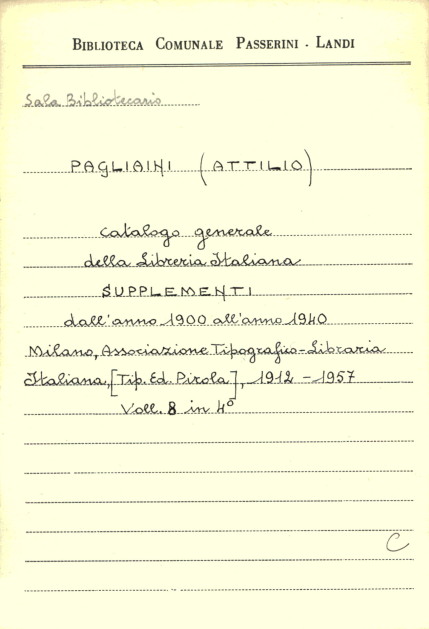 BIBLIOTECA COMUNALE PASSERINI - LANDI
Sala Bibliotecario
PAGLIAINI (ATTILIO)
Catalogo generale
della Libreria Italiana
SUPPLEMENTI
dall'anno 1900 all'anno 1940
Milano, Associazione Tipografico-Libraria
Italiana, [Tip. Ed. Pirola], 1912 - 1957
Voll. 8 in 4º
C